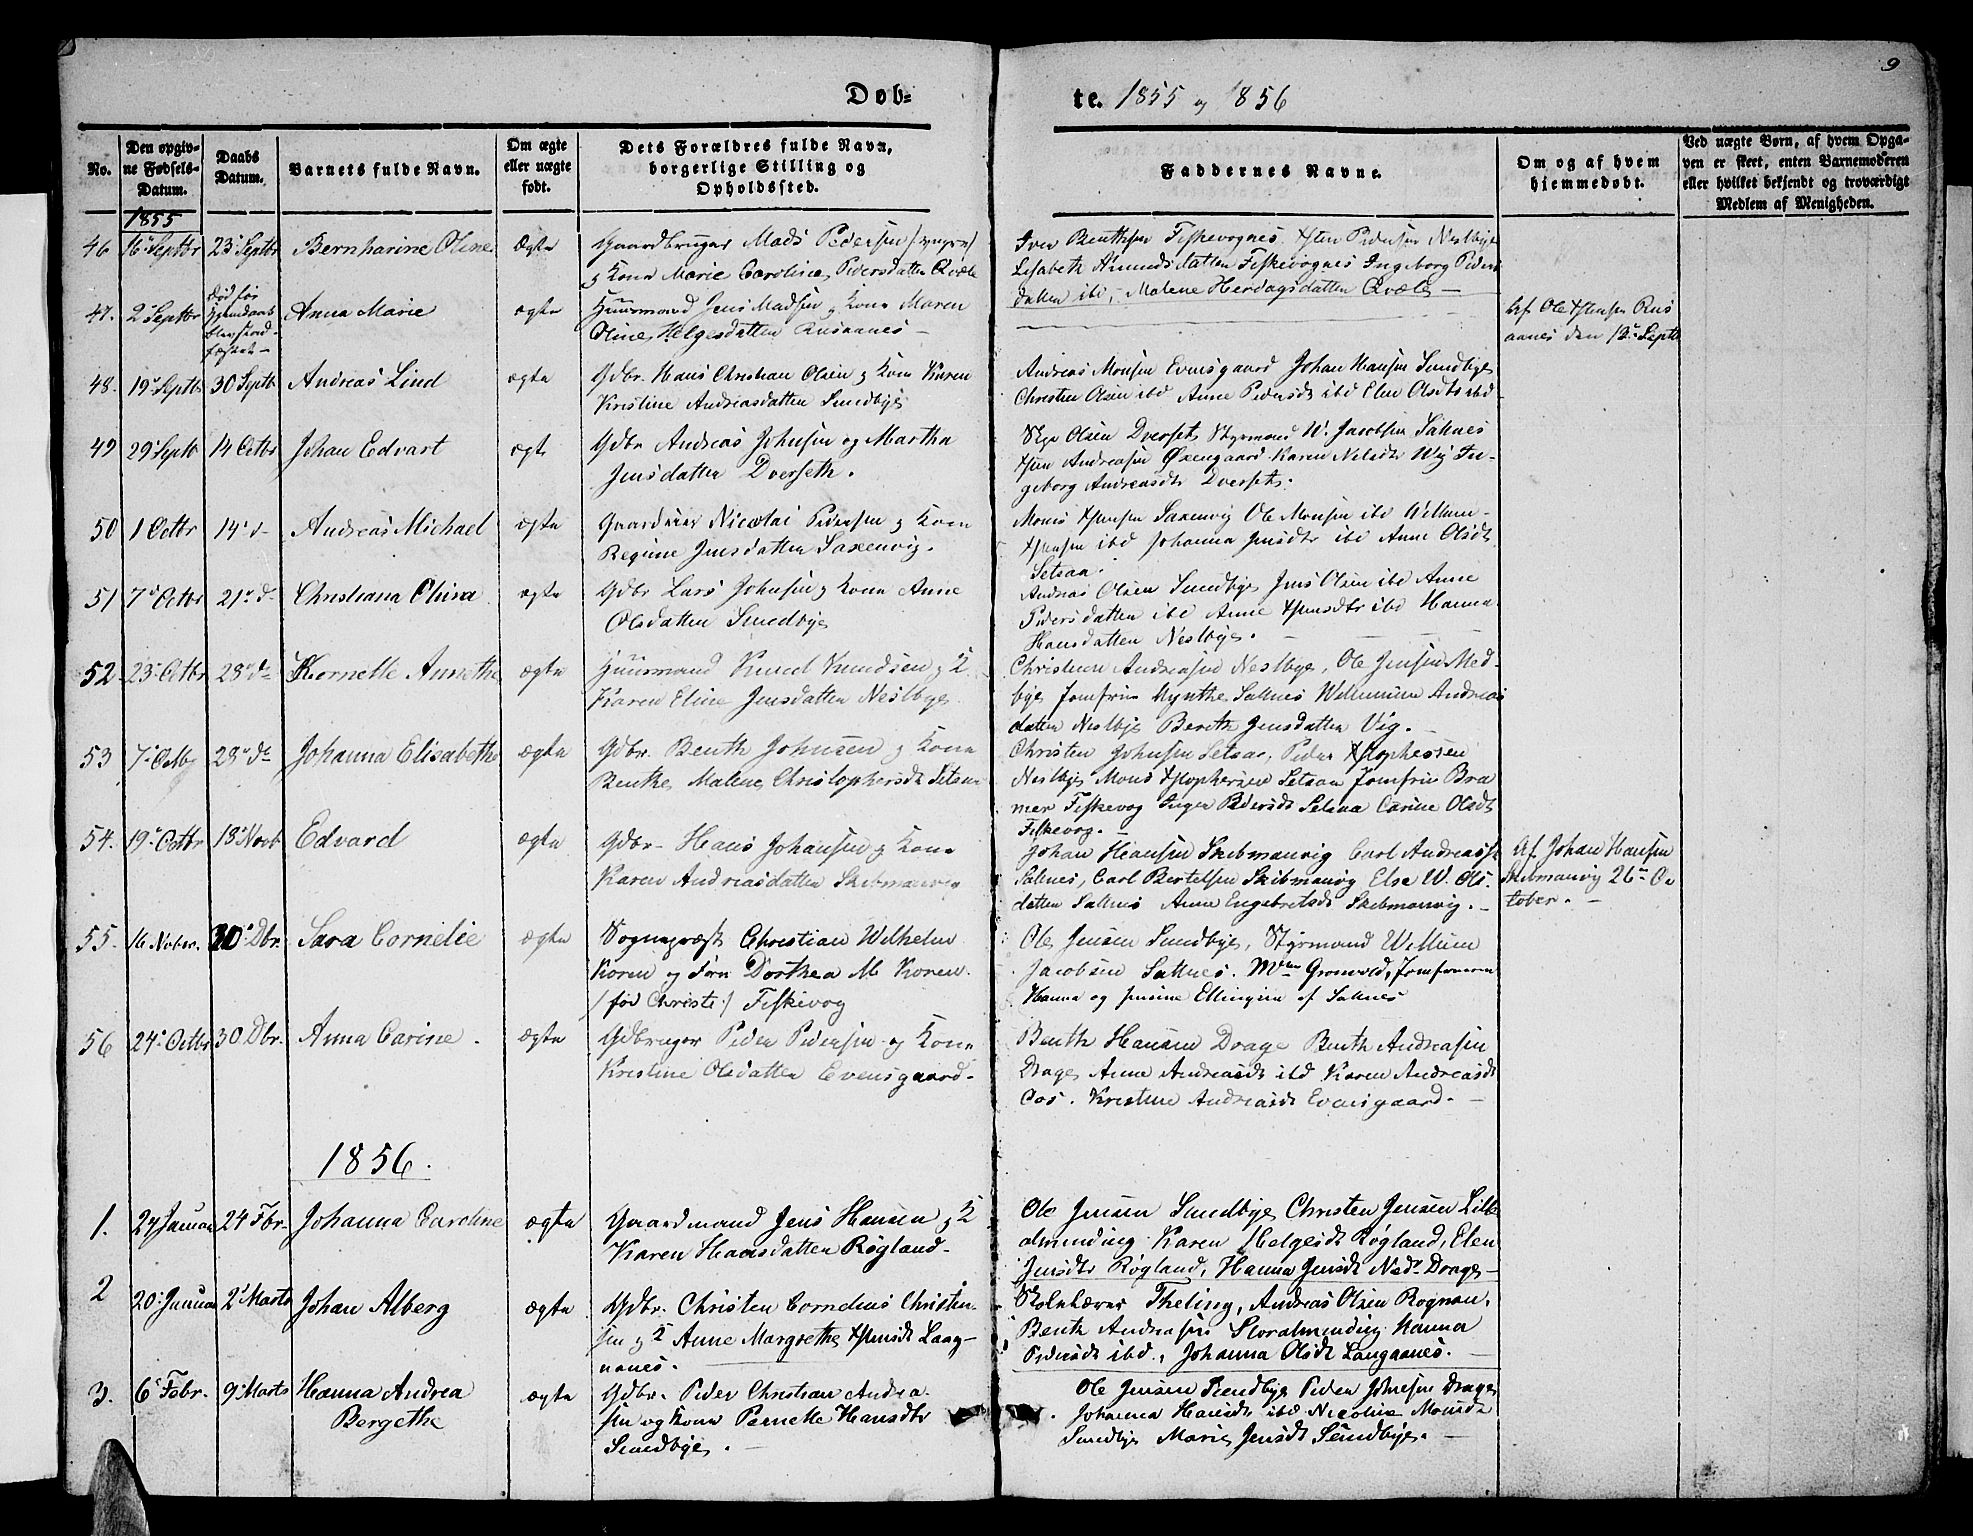 9
Døb-
te. 1855 og 1856
No.
Den opgiv-
ne Fødsels-
Datum.
Daabs
Datum.
Barnets fulde Navn.
Om ægte
eller uægte
født.
Dets Forældres fulde Navn,
borgerlige Stilling og
Opholdssted.
Faddernes Navne.
Om og af hvem
hjemmedøbt.
Ved uægte Børn, af hvem Opga-
ven er skeet, enten Barnemoderen
eller hvilket bekjendt og troværdigt
Medlem af Menigheden.
1855
46 16 Septbr 23 Septbr Bernharine Oline ægte Gaardbruger Mads Pedersen
og Kone Marie Caroline Pedersdatter Qvæle
Iver Benthsen Fiskevognes Pedersen Nestbye
Lisabeth Amundsdatter Fiskevognes Ingeborg Peders
datter ibd, Malene Herdagsdatter Qvæle
47. 2 Septbr død før Anna Marie ægte Huusmand Jens Madsen og Kone Maren
Oline Helgesdatter Rusaanes
Af Ole Rus
aanes den 12 Septb
48. 19 Septbr 30 Septb Andreas Lind ægte Gdbr. Hans Christian Olsen og Kone Karen
Kristine Andreasdatter Sundbye
Andreas Monsen Evensgaard Johan Hansen Sundbye
Christen Olsen ibd Anne Pedersdt ibd Elen Olsdtr ibd
49 29 Septb 14 Octbr Johan Edvart ægte Gdbr Andreas Johnsen og Martha
Jensdatter Dverseth.
Olsen Dverset, Styrmand W. Jacobsen Saltnes
Andreasen Øxengaard Karen Nelsdtr Wig In-
geborg Andreasdtr Dverset.
50 1 Octbr 14 d Andreas Michael ægte Nicolai Pedersen og Kone
Regine Jensdatter Saxenvig.
Mons Saxenvig Ole Monsen ibd Willum
ibd Johanna Jensdtr ibd Anne Olsdt
Setsaa.
51 7 Octbr 21 d Christiana Olina ægte Gdbr Lars Johnsen og Kone Anne
Olsdatter Sundbye
Andreas Olsen Sundbye Jens Olsen ibd Anne
Pedersdatter ibd Anne ibd Hanna
Hansdatter Nestbye.
52 23 Octbr 28 d Kornelle Annethe ægte Huusmand Knud Knudsen og K
Karen Eline Jensdatter Nestbye
Christian Andreasen Nestbye, Ole Jensen Med-
bye Jomfrue Mynthe Saltnes Willumine Andreas
datter Nestbye Bereth Jensdatter Vig.
53 7 Octbr 28 d Johanna Elisabeth ægte Gdbr. Benth Johnsen og Kone
Benthe Malene Christophersdt Setsaa
Christen Johnsen Setsaa, Peder
Nestbye Mons Setsaa Jomfrue Bra
mer Fiskevog Inger Pedersdt Setsaa Carine Olsdt
Fiskevog.
54. 19 Octbr 18 Novb Edvard ægte Gdbr. Hans Johansen og Kone
Karen Andreasdatter Skibmanvig
Johan Hansen Skibmanvig Carl Andreass
Saltnes, Carl Bertelsen Skibmanvig Else W. Ols.
datter Saltnes Anne Engebretsdt Skibmanvig.
Af Johan Hansen
Skibmanvig 26 Oc
tober.
55. 16 Novbr. 30 Dbr. Sara Cornelie ægte Sognepræst Christian Wilhelm
Koren og Fru Dorthea M Koren
/ fød Christie / Fiskevog
Ole Jensen Sundbye, Styrmand Willum
Jacobsen Saltnes. Mme Grønvold, Jomfruerne
Hanna og Jensine Ellingsen af Saltnes
56 24 Octbr 30 Dbr. Anna Carine. ægte Gdbruger Peder Pedersen og Kone
Kristine Olsdatter Evensgaard.
Benth Hansen Drage Benth Andreasen
Drage Anne Andreasdt ibd Karen Andreasdt
Oos. Kristine Andreasdt Evensgaard.
1856.
1. 27 Januar 24 Fbr. Johanna Caroline ægte Gaardmand Jens Hansen og K
Karen Hansdatter Røgland.
Ole Jensen Sundbye Christen Jensen Lille
almending Karen Helgesdt Røgland, Elen
Jensdtr Røgland, Hanna Jensdt Nedr Drage
2 20 Januar 2 Marts Johan Alberg ægte Gdbr. Christen Cornelius Christen-
sen og K Anne Margrethe Laang-
aanes.
Skolelærer Theting, Andreas Olsen Rognan,
Benth Andreasen Storalmending Hanna
Pedersdt ibd, Johanna Olsdt Langaanes.
3. 6 Febr. 9 Marts Hanna Andrea ægte Gdbr. Peder Christian Andrea
Bergethe
sen og Kone Pernelle Hansdtr
Sundbye.
Ole Jensen Sundbye Peder Johnsen Drage
Johanna Hansdt ibd Nicoline Monsdt
Sundbye Marie Jensdt Sundbye.